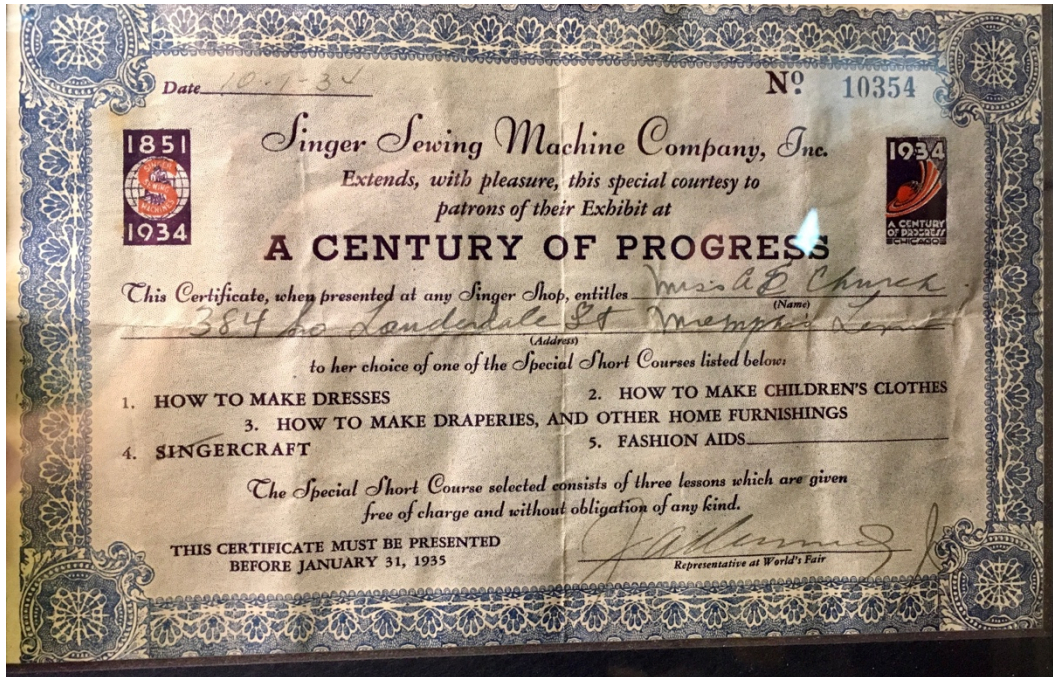 Date 10-1-34 Nº 10354
1851
SINGER
SEWING
MACHINES
1934
Singer Sewing Machine Company, Inc.
Extends, with pleasure, this special courtesy to
patrons of their Exhibit at
A CENTURY OF PROGRESS
1934
A CENTURY
OF PROGRESS
CHICAGO
This Certificate, when presented at any Singer Shop, entitles Miss A E Church
(Name)
384 So Lauderdale St Memphis Tenn
(Address)
to her choice of one of the Special Short Courses listed below:
1. HOW TO MAKE DRESSES 2. HOW TO MAKE CHILDREN'S CLOTHES
3. HOW TO MAKE DRAPERIES, AND OTHER HOME FURNISHINGS
4. SINGERCRAFT 5. FASHION AIDS
The Special Short Course selected consists of three lessons which are given
free of charge and without obligation of any kind.
THIS CERTIFICATE MUST BE PRESENTED
BEFORE JANUARY 31, 1935
Representative at World's Fair